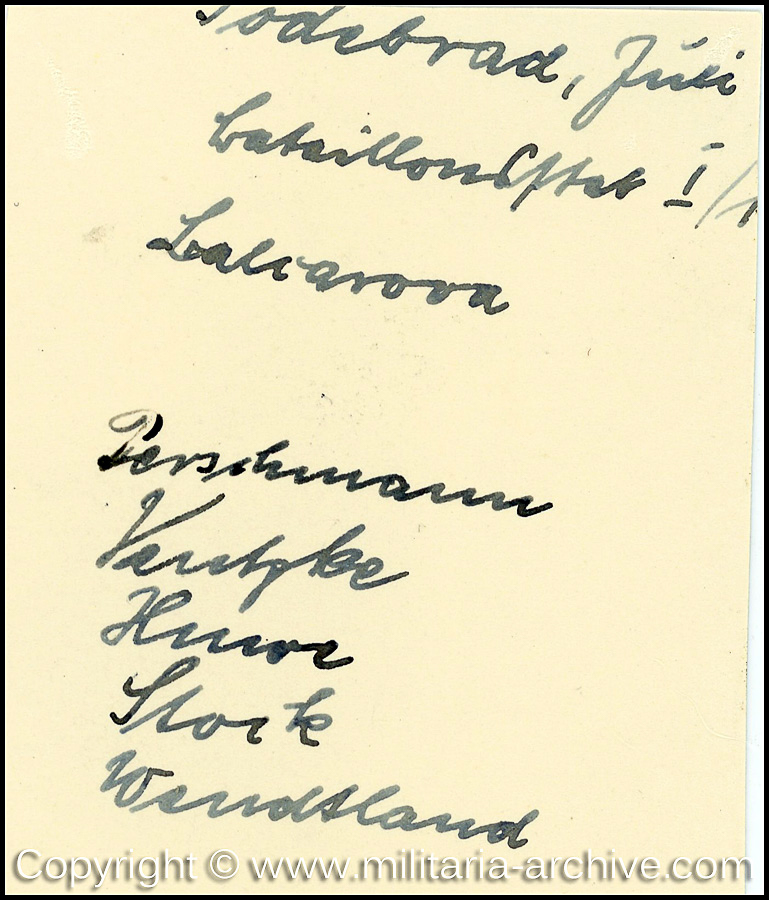 Podebrad, Juli
Bataillonsstab I/1
Balcarova
Perschmann
Ventzke
Stock
Wendtland
Copyright © www.militaria-archive.com